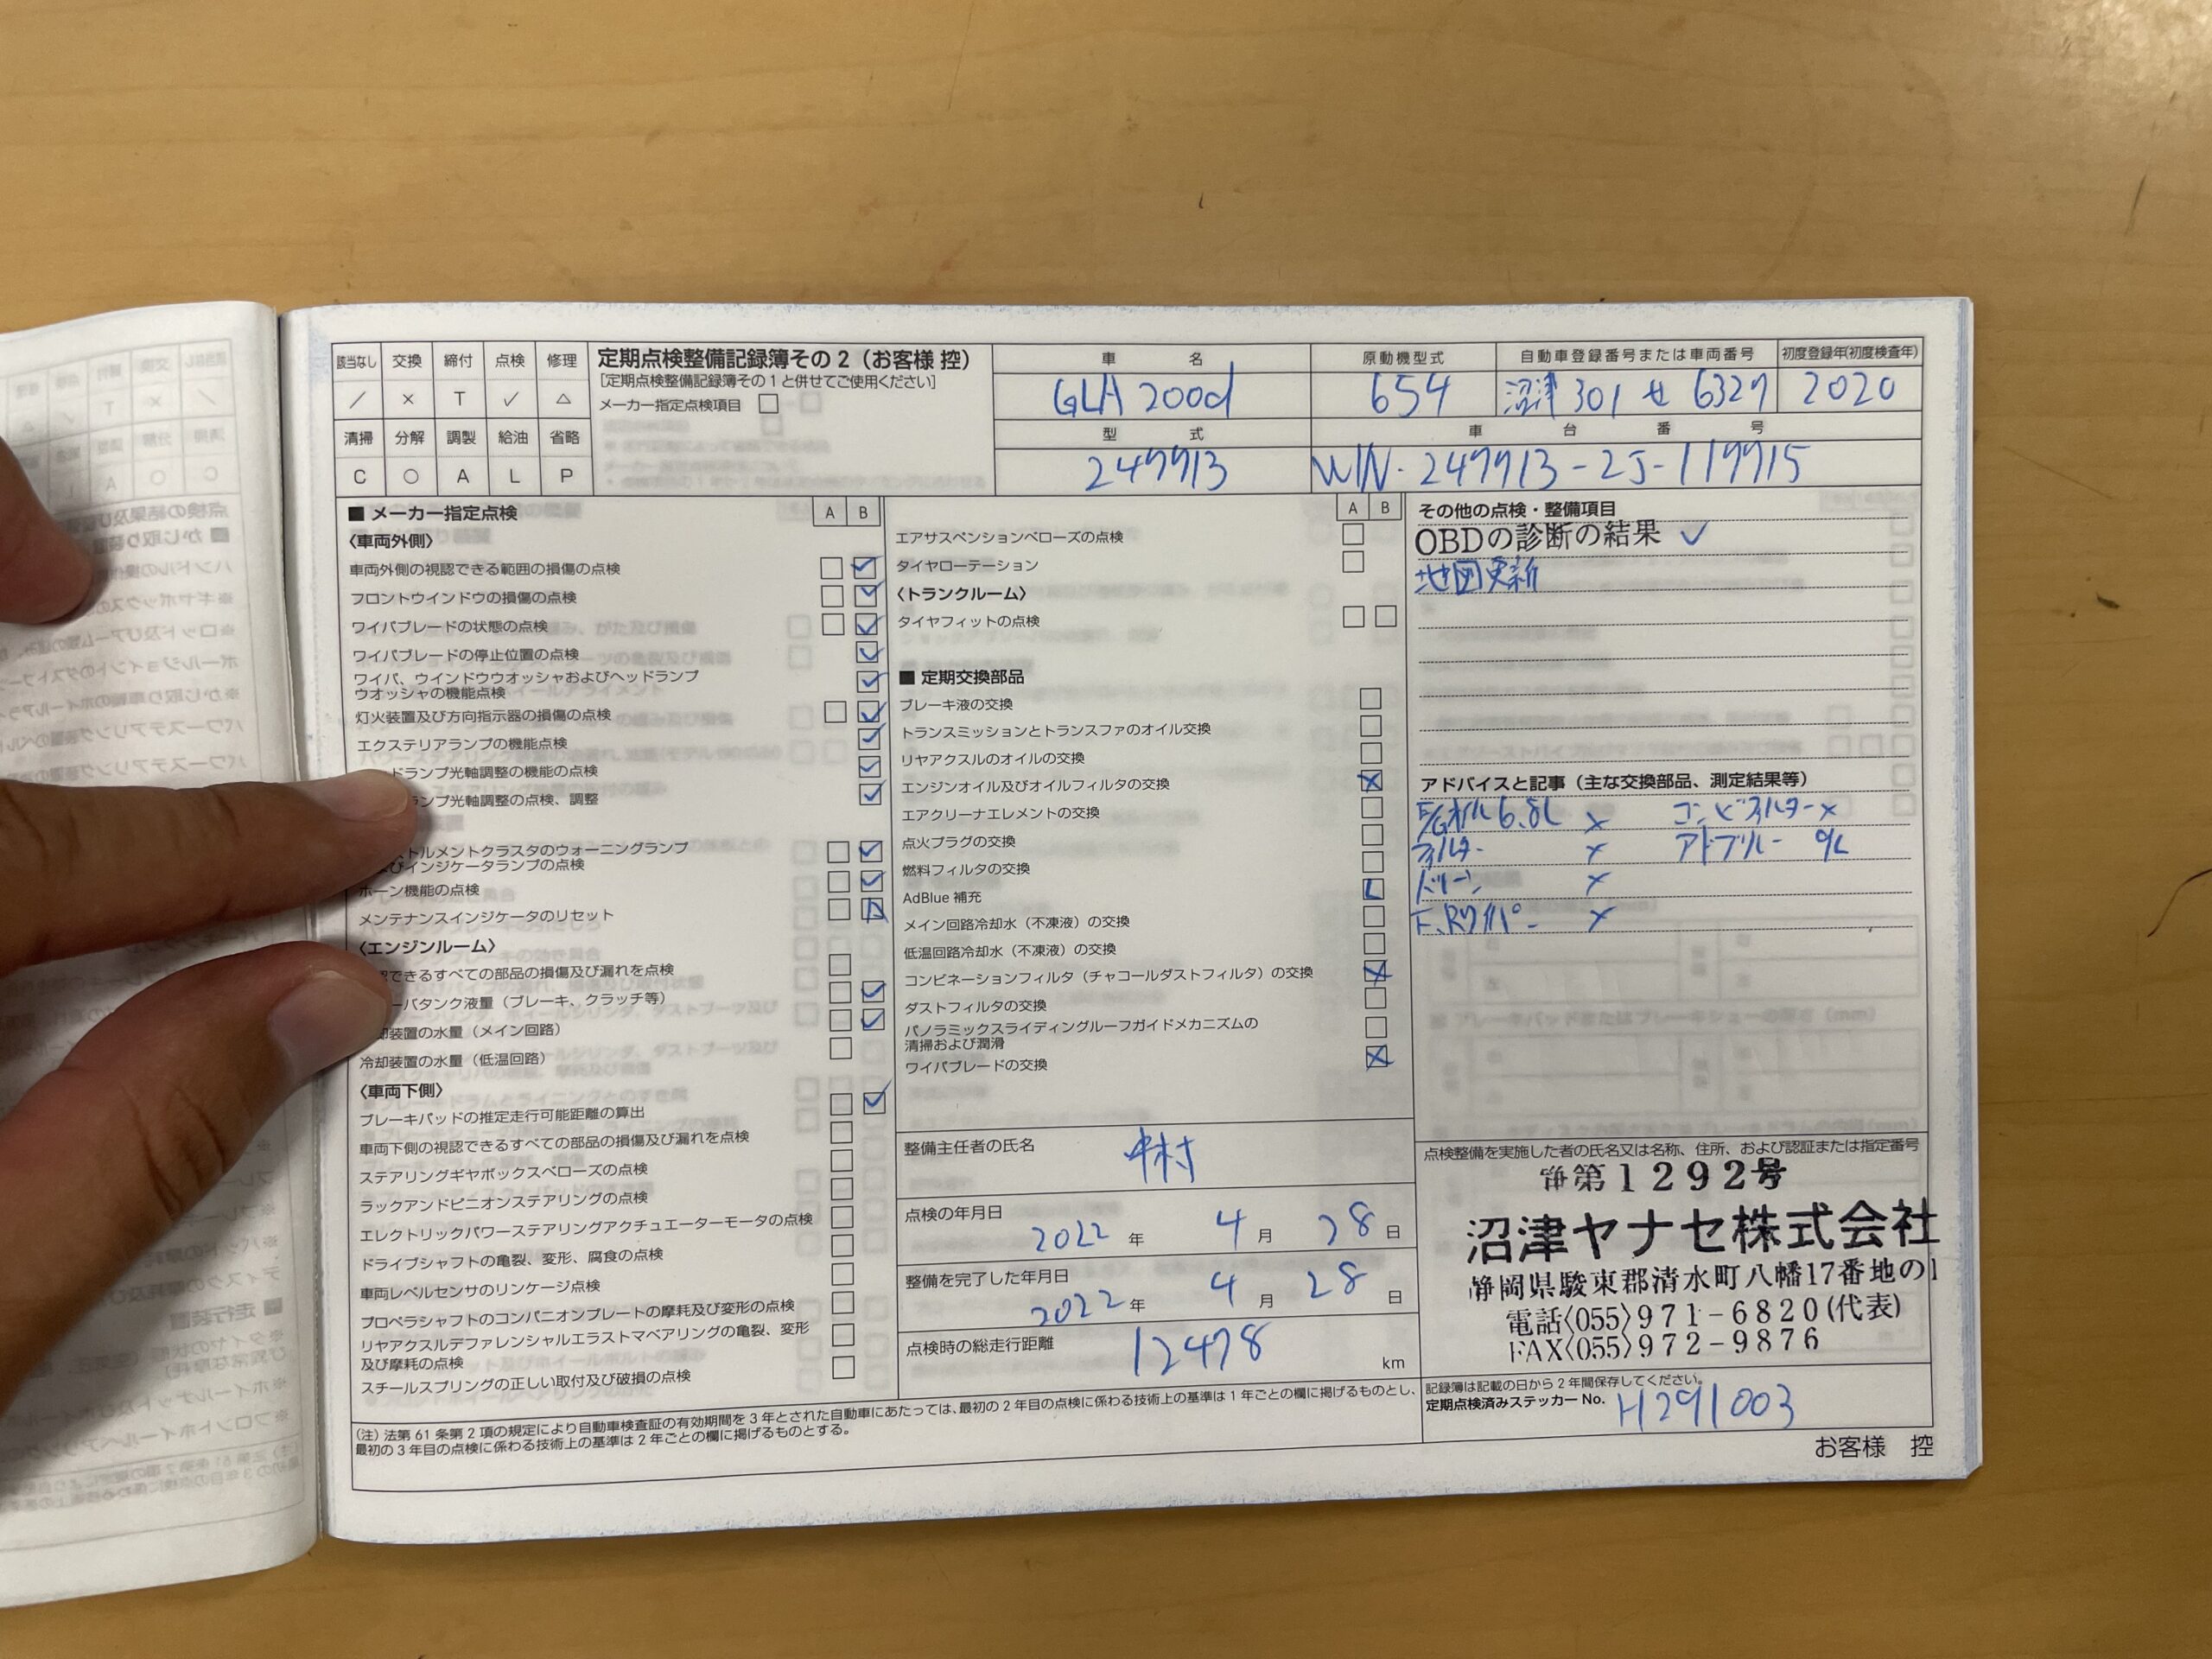 該当なし 交換 締付 点検 修理
／ × T ✓ △
清掃 分解 調製 給油 省略
C ○ A L P
定期点検整備記録簿その2（お客様 控）
［定期点検整備記録簿その1と併せてご使用ください］
メーカー指定点検項目 □
車 名
GLA 200d
原動機型式
654
自動車登録番号または車両番号
沼津 301 せ 6327
初度登録年(初度検査年)
2020
型 式
247713
車 台 番 号
W1N-247713-2J-119915
■ メーカー指定点検 A B
〈車両外側〉
車両外側の視認できる範囲の損傷の点検
フロントウインドウの損傷の点検
ワイパブレードの状態の点検
ワイパブレードの停止位置の点検
ワイパ、ウインドウウオッシャおよびヘッドランプ
ウオッシャの機能点検
灯火装置及び方向指示器の損傷の点検
エクステリアランプの機能点検
ドランプ光軸調整の機能の点検
ンプ光軸調整の点検、調整
トルメントクラスタのウォーニングランプ
びインジケータランプの点検
ホーン機能の点検
メンテナンスインジケータのリセット
〈エンジンルーム〉
できるすべての部品の損傷及び漏れを点検
バタンク液量（ブレーキ、クラッチ等）
却装置の水量（メイン回路）
冷却装置の水量（低温回路）
〈車両下側〉
ブレーキパッドの推定走行可能距離の算出
車両下側の視認できるすべての部品の損傷及び漏れを点検
ステアリングギヤボックスベローズの点検
ラックアンドピニオンステアリングの点検
エレクトリックパワーステアリングアクチュエーターモータの点検
ドライブシャフトの亀裂、変形、腐食の点検
車両レベルセンサのリンケージ点検
プロペラシャフトのコンパニオンプレートの摩耗及び変形の点検
リヤアクスルデファレンシャルエラストマベアリングの亀裂、変形
及び摩耗の点検
スチールスプリングの正しい取付及び破損の点検
A B
エアサスペンションベローズの点検
タイヤローテーション
〈トランクルーム〉
タイヤフィットの点検
■ 定期交換部品
ブレーキ液の交換
トランスミッションとトランスファのオイル交換
リヤアクスルのオイルの交換
エンジンオイル及びオイルフィルタの交換 ×
エアクリーナエレメントの交換
点火プラグの交換
燃料フィルタの交換
AdBlue 補充 L
メイン回路冷却水（不凍液）の交換
低温回路冷却水（不凍液）の交換
コンビネーションフィルタ（チャコールダストフィルタ）の交換 ×
ダストフィルタの交換
パノラミックスライディングルーフガイドメカニズムの
清掃および潤滑
ワイパブレードの交換 ×
整備主任者の氏名
中村
点検の年月日
2022 年 4 月 28 日
整備を完了した年月日
2022 年 4 月 28 日
点検時の総走行距離
12478 km
その他の点検・整備項目
OBDの診断の結果 ✓
地図更新
アドバイスと記事（主な交換部品、測定結果等）
E/Gオイル 6.8L × コンビフィルター ×
フィルター × アドブルー 9L
ドレーン ×
F、Rワイパー ×
点検整備を実施した者の氏名又は名称、住所、および認証または指定番号
静第1292号
沼津ヤナセ株式会社
静岡県駿東郡清水町八幡17番地の1
電話〈055〉971-6820(代表)
FAX〈055〉972-9876
記録簿は記載の日から2年間保存してください。
定期点検済みステッカーNo. H291003
（注）法第61条第2項の規定により自動車検査証の有効期間を3年とされた自動車にあたっては、最初の2年目の点検に係わる技術上の基準は1年ごとの欄に掲げるものとし、
最初の3年目の点検に係わる技術上の基準は2年ごとの欄に掲げるものとする。
お客様 控